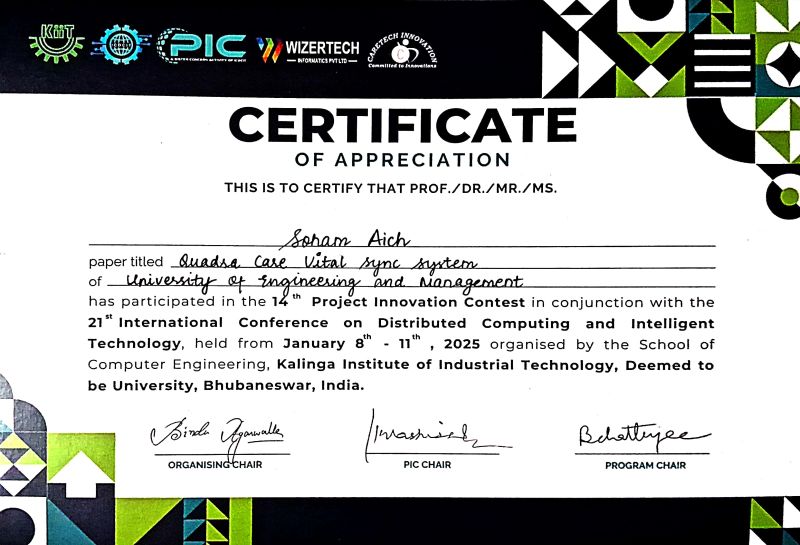 KiiT
PIC
WIZERTECH
INFORMATICS PVT LTD
CARETECH INNOVATION
Committed to Innovations
CERTIFICATE
OF APPRECIATION
THIS IS TO CERTIFY THAT PROF./DR./MR./MS.
Soham Aich
paper titled Quadra Care Vital sync system
of University of Engineering and Management
has participated in the 14th Project Innovation Contest in conjunction with the
21st International Conference on Distributed Computing and Intelligent
Technology, held from January 8th - 11th , 2025 organised by the School of
Computer Engineering, Kalinga Institute of Industrial Technology, Deemed to
be University, Bhubaneswar, India.
Bindu Agarwalla
BChatterjee
ORGANISING CHAIR
PIC CHAIR
PROGRAM CHAIR